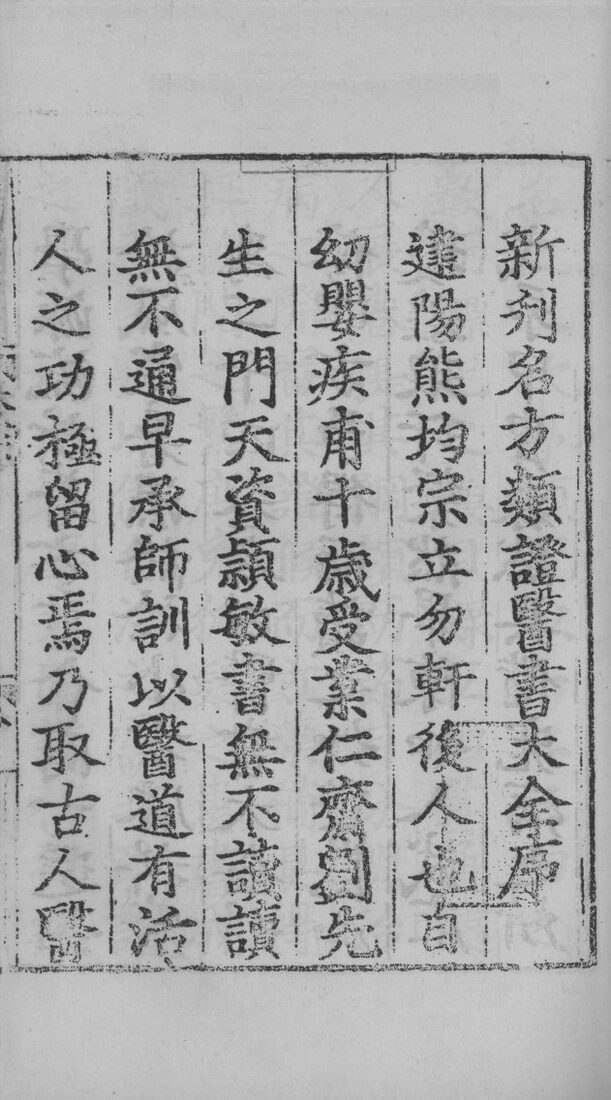 新刋名方類證醫書大全序
建陽熊均宗立勿軒後人也自
㓜嬰疾甫十歲受業仁齋劉先
生之門天資頴敏書無不讀讀
無不通早承師訓以醫道有活
人之功極留心焉乃取古人醫